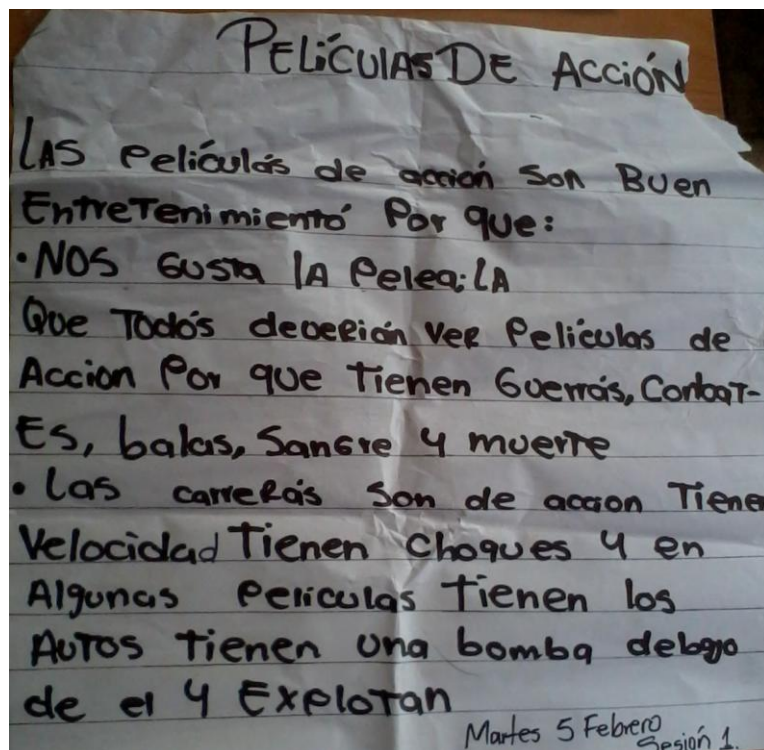 PELÍCULAS DE ACCIÓN
LAS Películas de acción son BUEN
EntreTenimiento Por que:
• NOS GUSTA LA Pelea; LA
Que Todos deverián VER Películas de
Accion Por que Tienen Guerras, CombaT-
Es, balas, Sangre y muerte
• Las carreras son de accion Tienen
Velocidad Tienen choques y en
Algunas Peliculas tienen los
AUTOS Tienen una bomba debajo
de el y EXPLOTAN
Martes 5 Febrero
Sesión 1.